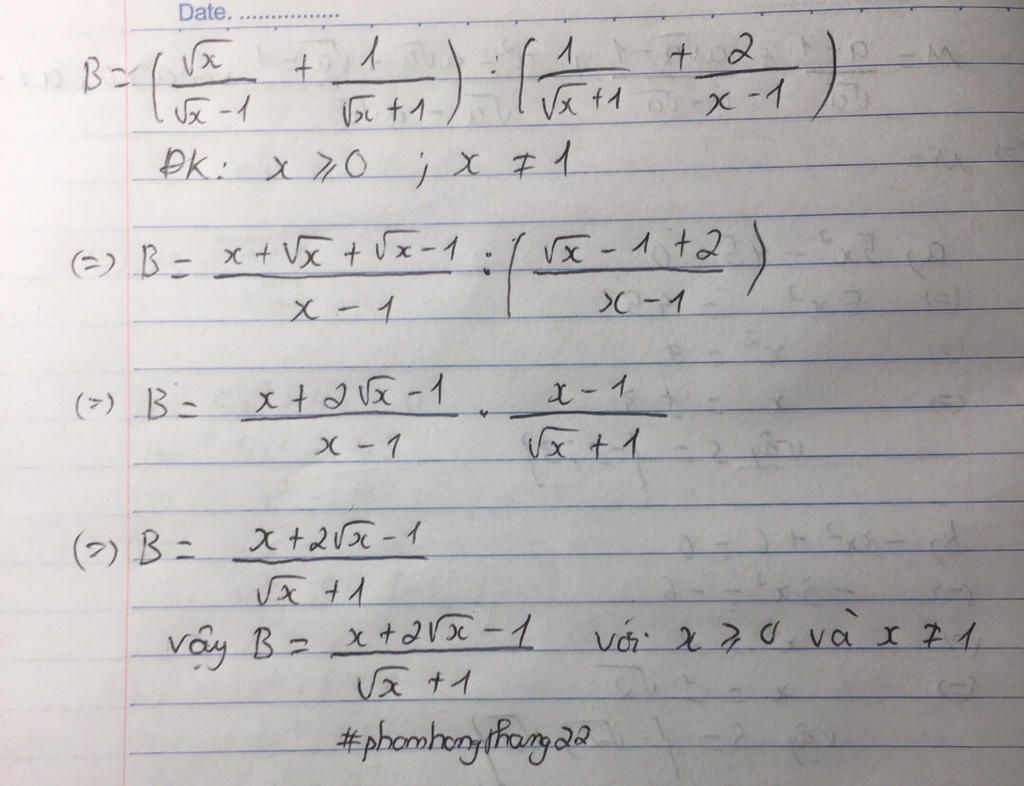 Date. ................
B = (√x/(√x - 1) + 1/(√x + 1)) : (1/(√x + 1) + 2/(x - 1))
ĐK: x ≥ 0 ; x ≠ 1
(=) B = (x + √x + √x - 1)/(x - 1) : ((√x - 1 + 2)/(x - 1))
(=) B = (x + 2√x - 1)/(x - 1) . (x - 1)/(√x + 1)
(=) B = (x + 2√x - 1)/(√x + 1)
vậy B = (x + 2√x - 1)/(√x + 1) với x ≥ 0 và x ≠ 1